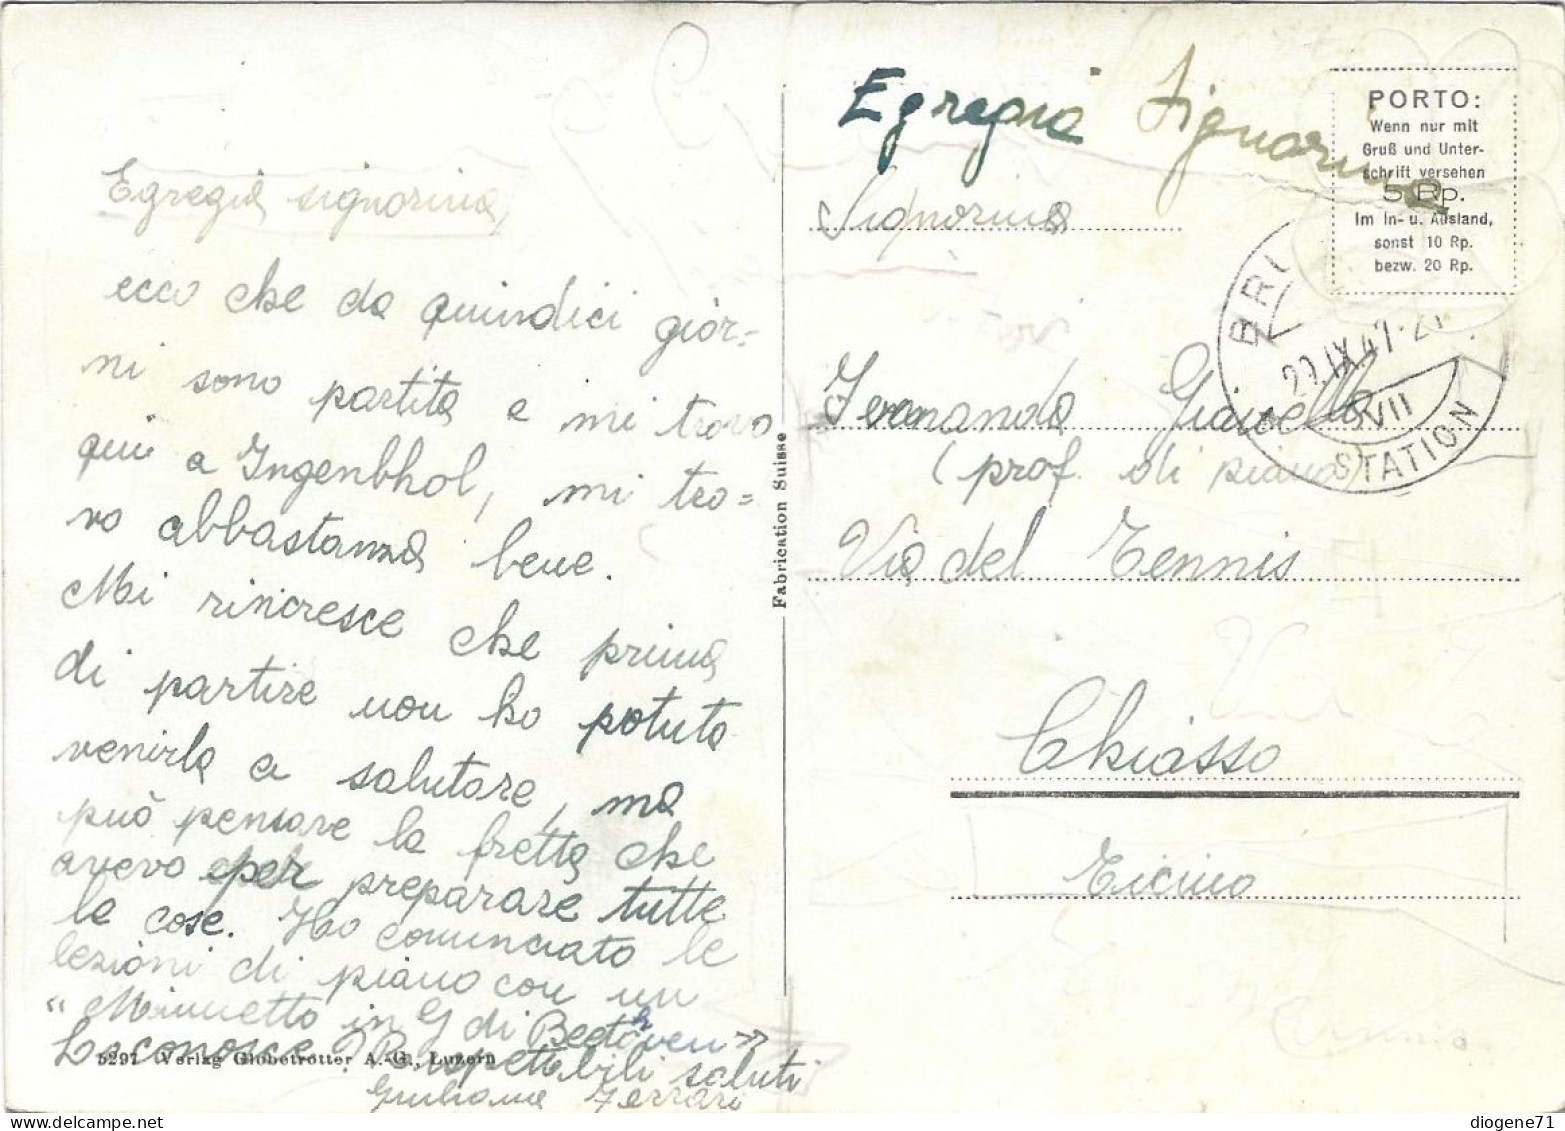 Egregia signorina,
ecco che da quindici gior=
ni sono partita e mi trovo
qui a Ingenbhol, mi tro=
vo abbastanza bene.
Mi rincresce che prima
di partire non ho potuta
venirla a salutare, ma
può pensare la fretta che
avevo per preparare tutte
le cose. Ho cominciato le
lezioni di piano con un
"Minuetto in G di Beethoven"
La conosce? Rispettabili saluti
Giuliana Ferrari
5297 Verlag Globetrotter A.-G., Luzern
Fabrication Suisse
Egregia Signorina
Signorina
Fernanda
(prof. di piano)
Via del Tennis
Chiasso
Ticino
PORTO:
Wenn nur mit
Gruß und Unter-
schrift versehen
5 Rp.
Im In- u. Ausland,
sonst 10 Rp.
bezw. 20 Rp.
BRU
29.IX.47
VII
STATION
diogene71